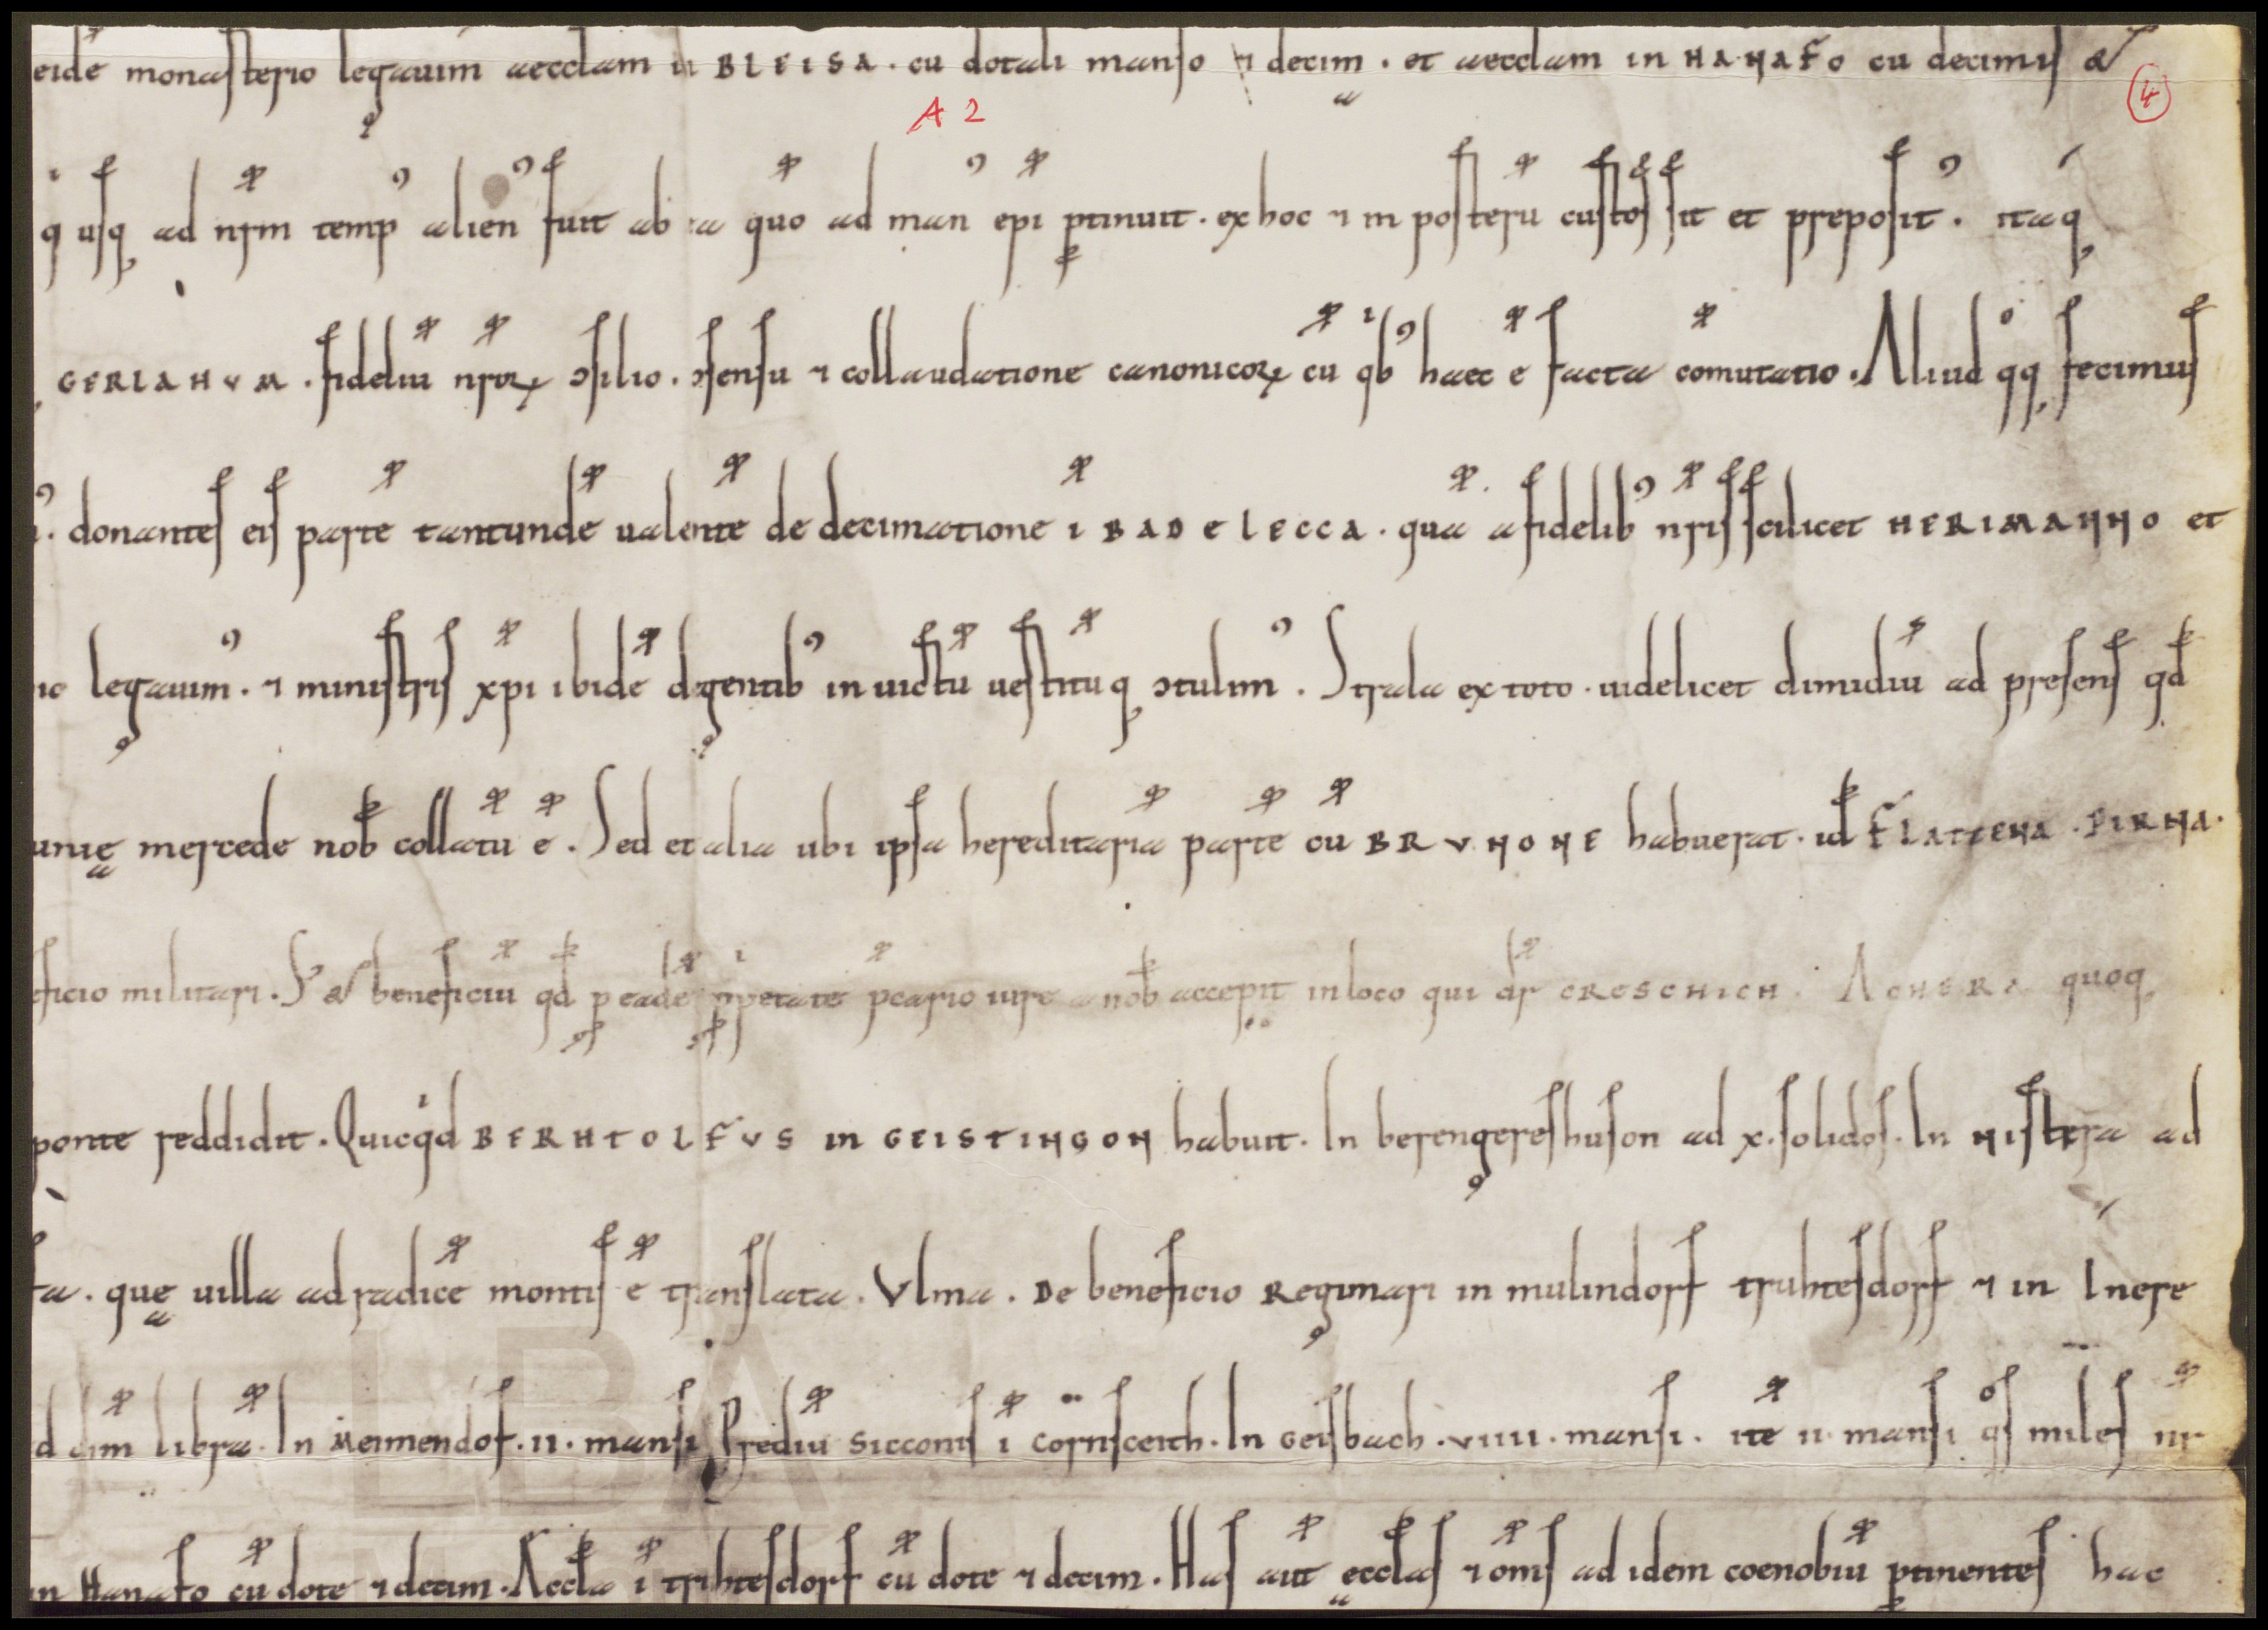 eidē monasterio legauim aecclam in BLEISA. cū dotali manso ⁊ decim. et aecclam in HANAFO cū decimis &
A 2
4
q usq ad nrm temp alien fuit ab ea quo ad man epi ptinuit. ex hoc ⁊ in posterū custos sit et preposit. itaq
GERLAHVM. fidelium nrorꝝ ↄsilio. ↄsensu ⁊ collaudatione canonicorꝝ cū qb haec ē facta cōmutatio. Aliud qqꝫ fecimus
donantes eis partē tantundē ualentē de decimatione ī BADELECCA. quā a fidelib nris scilicet HERIMANNO et
legauim. ⁊ ministris xpi ibidē degentib in uictū uestituq ↄtulim. Strala ex toto. uidelicet dimidiū ad presens qd
mercede nob collatū ē. Sed et alia ubi ipsa hereditariā partē cū BRVNONE habuerat. id FLATTENA. PIRNA.
eficio militari. S; & beneficiū qd p eadē pp̄etate p̄cario iure a nob accepit in loco qui dr̄ CRESCHICH. ACHERA quoq
ponte reddidit. Quicqd BERHTOLFVS in GEISTINGON habuit. In berengereshuson ad x. solidos. In nistera ad
ta. quę uilla ad radicē montis ē translata. Vlma. De beneficio Reginari in mulindorf truhtesdorf ⁊ in Inere
d dim librā. In Meimendof. ii. mansi Prediū Sicconis ī Cornsceith. In Geisbach. viiii. mansi. itē ii. mansi qs miles nr
in Hanafo cū dote ⁊ decim. Accla ī truhtesdorf cū dote ⁊ decim. Has aut ęcclas ⁊ oms ad idem coenobiū ptinentes hac